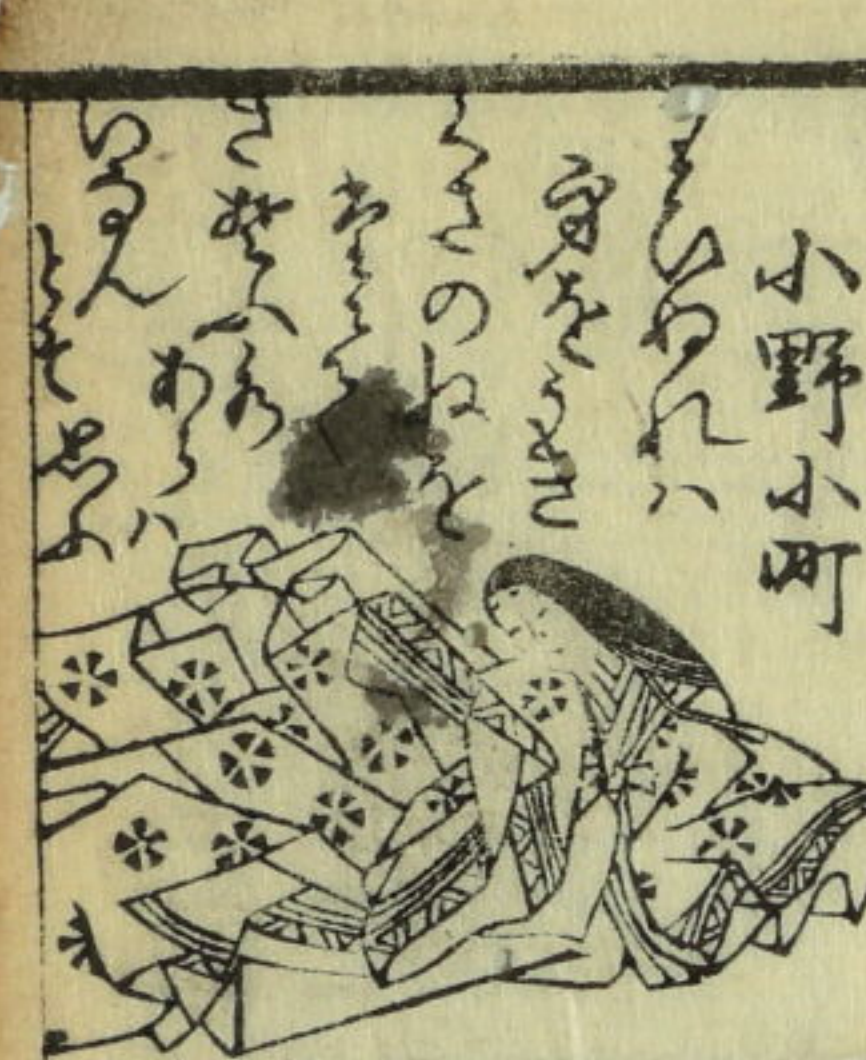 小野小町
わひぬれハ
身をうき
くさのねを
たえて
さそふ水
あらハ
いなん
とそ思ふ